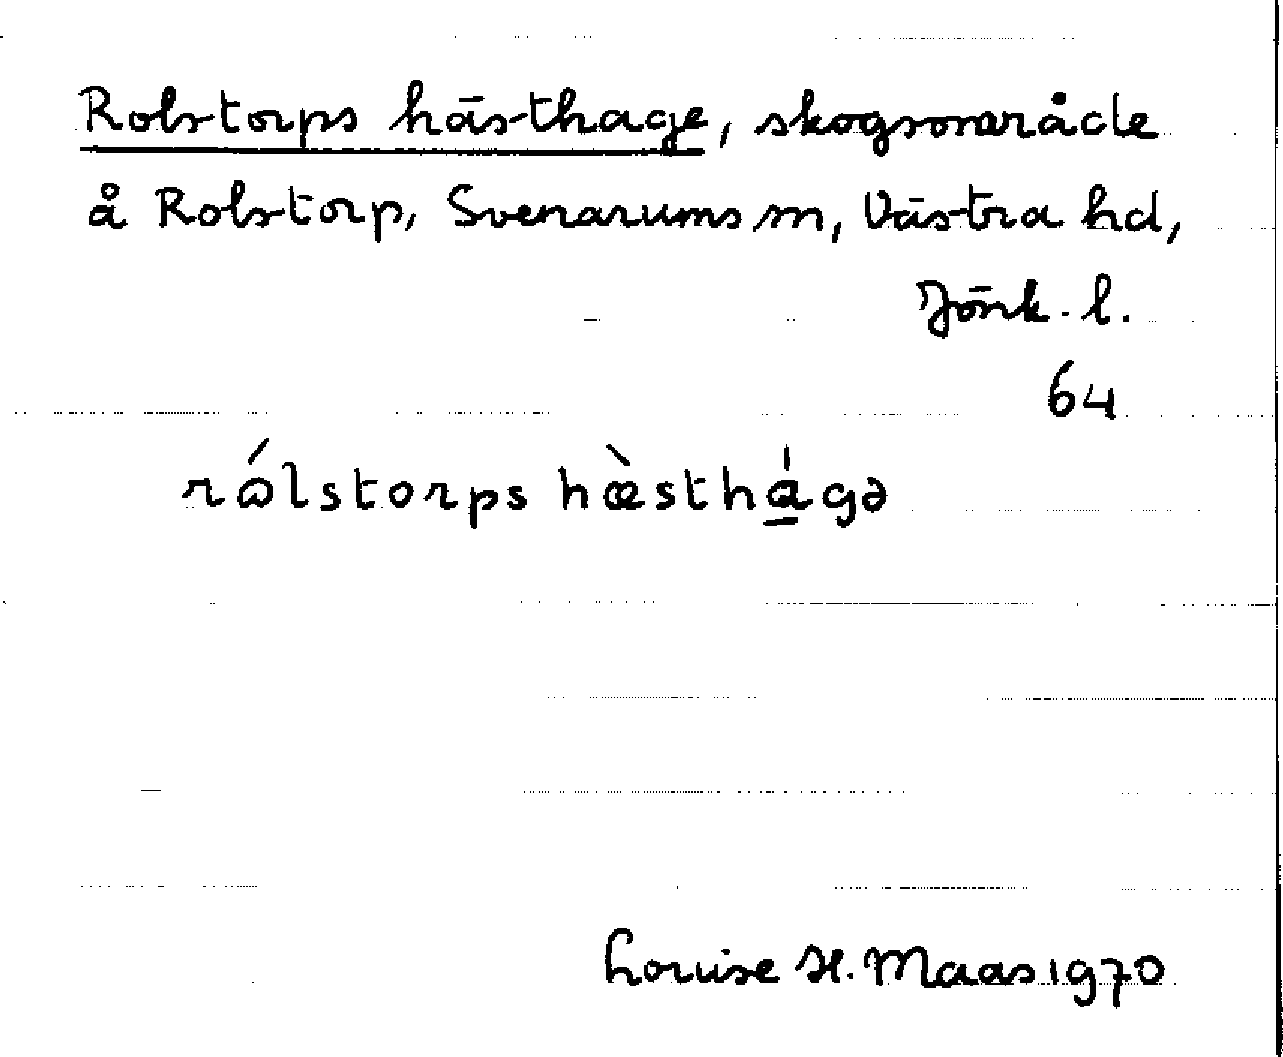 Rolstorps hästhage, skogsområde
å Rolstorp, Svenarums sn, Västra hd,
Jönk. l.
64
rɷ́lstorps hæ̀sthá̱gə
Louise H. Maas 1970